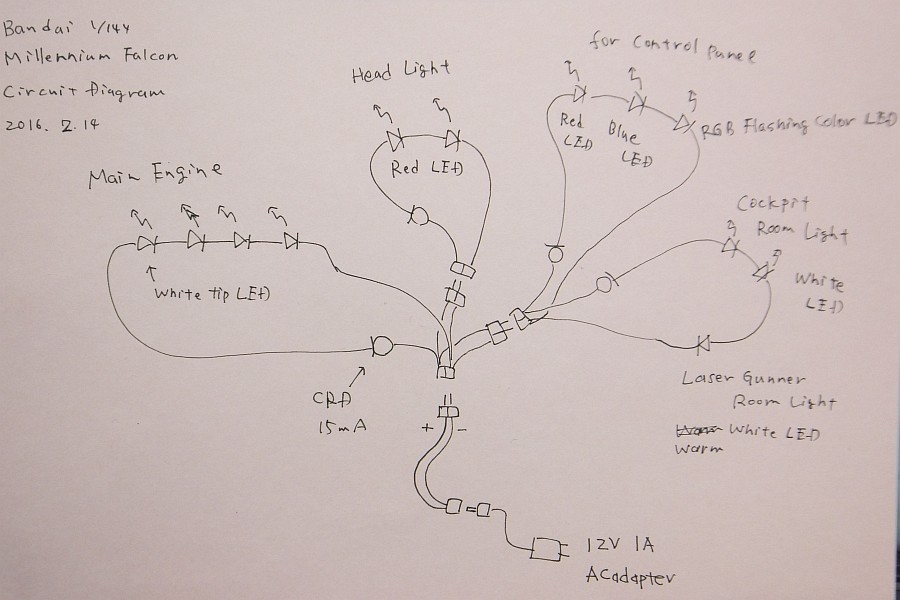 Bandai 1/144
Millennium Falcon
Circuit Diagram
2016. 2.14
Head Light
Red LED
for Control Panel
Red
LED
Blue
LED
RGB Flashing Color LED
Main Engine
White tip LED
Cockpit
Room Light
White
LED
CRD
15mA
Laser Gunner
Room Light
White LED
Warm
+ -
12V 1A
ACadapter